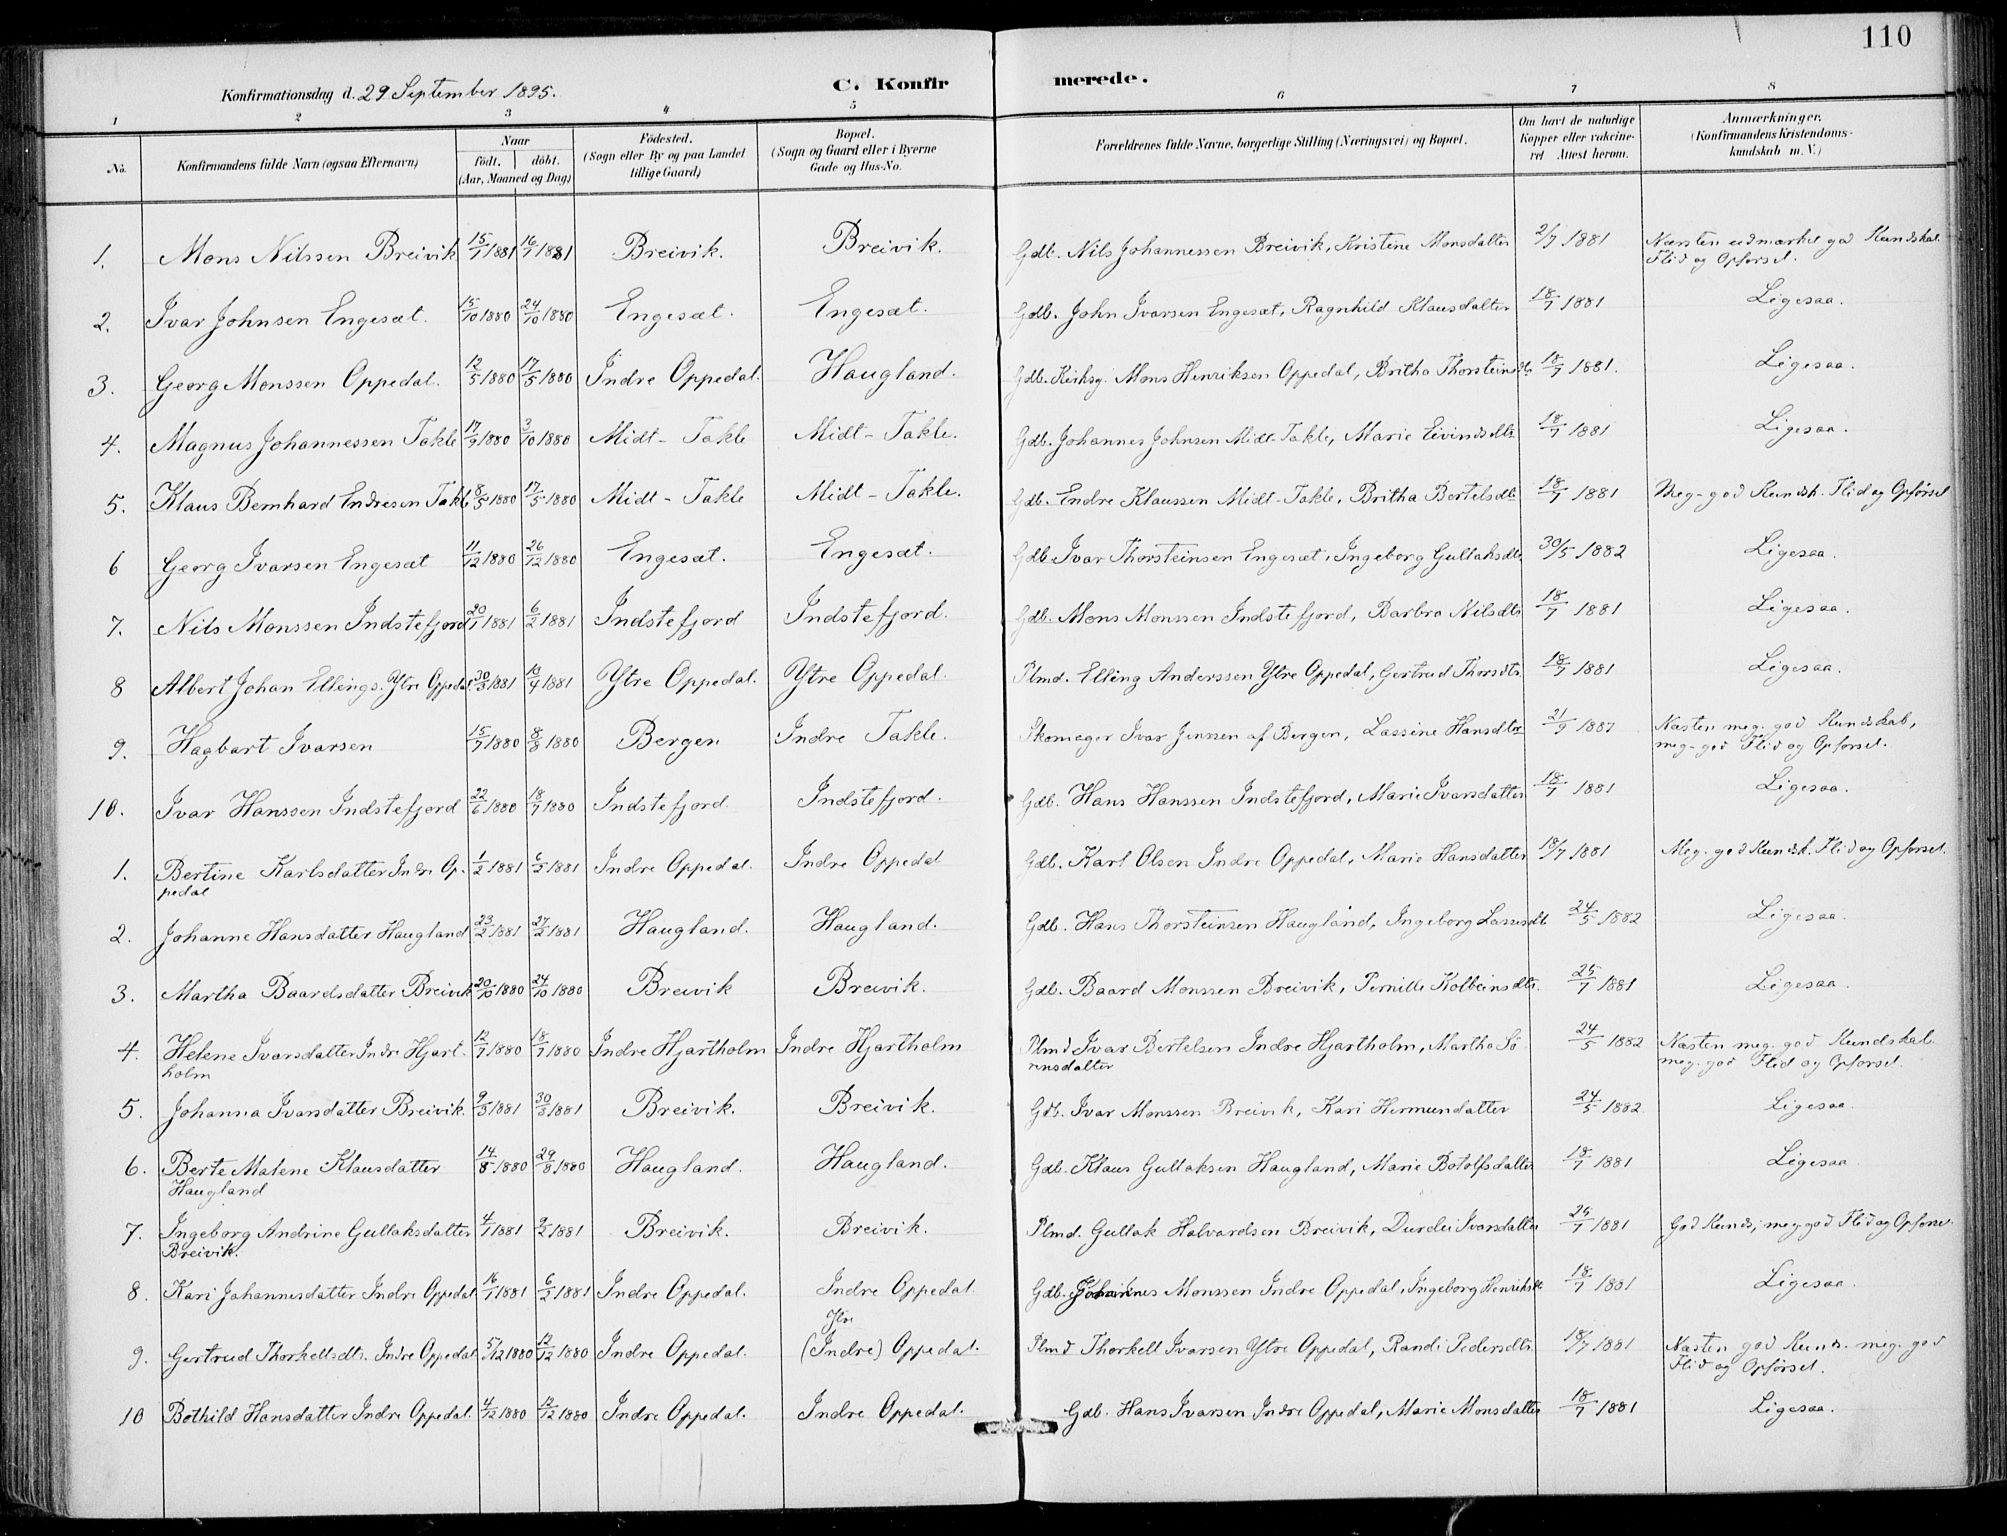 110
Konfirmationsdag d. 29 September 1895.
C. Konfirmerede.
1 2 3 4 5 6 7 8
No. Konfirmandens fulde Navn (ogsaa Efternavn) Naar födt. döbt. (Aar, Maaned og Dag) Födested. (Sogn eller By og paa Landet tillige Gaard) Bopæl. (Sogn og Gaard eller i Byerne Gade og Hus-No. Forældrenes fulde Navne, borgerlige Stilling (Næringsvei) og Bopæl. Om havt de naturlige Kopper eller vakcineret Attest herom. Anmærkninger. (Konfirmandens Kristendomskundskab m. V.)
1. Mons Nilssen Breivik 15/7 1881 16/7 1881 Breivik. Breivik. Gdb. Nils Johannessen Breivik, Kristine Monsdatter 2/7 1881 Næsten udmærket god Kundskab. Flid og Opførsel.
2. Ivar Johnsen Engesæt. 15/10 1880 24/10 1880 Engesæt. Engesæt. Gdb. John Ivarsen Engesæt, Ragnhild Klausdatter 18/7 1881 Ligesaa.
3. Georg Monssen Oppedal. 12/5 1880 17/5 1880 Indre Oppedal. Haugland. Gdb. Kirksg. Mons Henriksen Oppedal, Britha Thorsteinsdtr 18/7 1881. Ligesaa.
4. Magnus Johannessen Takle 17/9 1880 3/10 1880 Midt-Takle Midt-Takle. Gdb. Johannes Johnsen Midt-Takle, Marie Eivindsdtr 18/7 1881 Ligesaa.
5. Klaus Bernhard Endresen Takle 8/5 1880 17/5 1880 Midt-Takle Midt-Takle. Gdb. Endre Klaussen Midt-Takle, Britha Bertelsdtr 18/7 1881 Meg-god Kundsk. Flid og Opførsel
6 Georg Ivarsen Engesæt 11/12 1880 26/12 1880 Engesæt. Engesæt. Gdb. Ivar Thorsteinsen Engesæt, Ingeborg Gullaksdtr 30/5 1882 Ligesaa.
7. Nils Monssen Indstefjord 20/1 1881 6/2 1881 Indstefjord Indstefjord. Gdb. Mons Monssen Indstefjord, Barbra Nilsdtr 18/7 1881 Ligesaa.
8 Albert Johan Ellings. Ytre Oppedal 30/3 1881 10/4 1881 Ytre Oppedal. Ytre Oppedal. Plmd. Elling Anderssen Ytre Oppedal, Gertrud Thorsdtr. 18/7 1881 Ligesaa.
9. Hagbart Ivarsen 15/7 1880 8/8 1880 Bergen Indre Takle. Skomager Ivar Jenssen af Bergen, Lassine Hansdtr 21/9 1887 Næsten meg. god Kundskab, meg-god Flid og Opførsel.
10. Ivar Hanssen Indstefjord 22/6 1880 18/7 1880 Indstefjord. Indstefjord. Gdb. Hans Hanssen Indstefjord, Marie Ivarsdatter 18/7 1881 Ligesaa.
1. Bertine Karlsdatter Indre Oppedal 1/2 1881 6/2 1881 Indre Oppedal. Indre Oppedal Gdb. Karl Olsen Indre Oppedal, Marie Hansdatter 18/7 1881 Meg. god Kundsk. Flid og Opførsel.
2. Johanne Hansdatter Haugland 23/2 1881 27/2 1881 Haugland. Haugland. Gdb. Hans Thorsteinsen Haugland, Ingeborg Lassesdtr 24/5 1882 Ligesaa.
3. Martha Baardsdatter Breivik 20/10 1880 24/10 1880 Breivik Breivik. Gdb. Baard Monssen Breivik, Pernille Kolbeinsdtr. 25/7 1881 Ligesaa.
4. Helene Ivarsdatter Indre Hjartholm 12/7 1880 18/7 1880 Indre Hjartholm Indre Hjartholm Plmd Ivar Bertelsen Indre Hjartholm, Martha Sörensdatter 24/5 1882 Næsten meg. god Kundskab. meg. god Flid og Opførsel.
5. Johanna Ivarsdatter Breivik. 9/3 1881 30/3 1881 Breivik. Breivik. Gdb. Ivar Monssen Breivik, Kari Hermundatter 24/5 1882. Ligesaa.
6. Berte Malene Klausdatter Haugland 14/8 1880 29/8 1880 Haugland. Haugland. Gdb. Klaus Gullaksen Haugland, Marie Botolfsdatter 18/7 1881 Ligesaa
7. Ingeborg Andrine Gullaksdatter Breivik. 4/1 1881 9/2 1881 Breivik. Breivik. Plmd. Gullak Halvardsen Breivik, Durdei Ivarsdatter 25/7 1881 God Kunds, meg god Flid og Opførsel.
8. Kari Johannesdatter Indre Oppedal 16/1 1881 6/2 1881 Indre Oppedal. Indre Oppedal. Gdb. Johannes Monssen Indre Oppedal, Ingeborg Henriksdtr 18/7 1881 Ligesaa.
9. Gertrud Thorkellsdtr. Indre Oppedal 5/12 1880 12/12 1880 Indre Oppedal. Ytre (Indre) Oppedal. Plmd Thorkell Ivarsen Ytre Oppedal, Randi Pedersdtr. 18/7 1881 Næsten god Kunds. meg. god Flid og Opførsel.
10 Bothild Hansdatter Indre Oppedal. 4/12 1880 12/12 1880 Indre Oppedal. Indre Oppedal. Gdb. Hans Ivarsen Indre Oppedal, Marie Monsdatter 18/7 1881 Ligesaa.